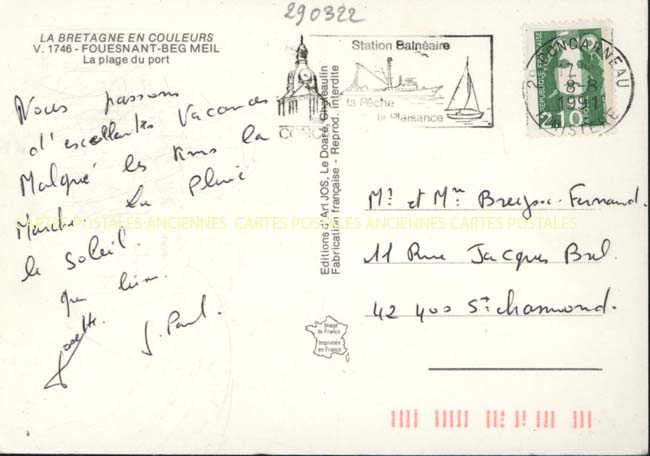 290322
LA BRETAGNE EN COULEURS
V. 1746 - FOUESNANT-BEG MEIL
La plage du port
Station Balnéaire
la Pêche
la Plaisance
CONC
29 CONCARNEAU
8-8
1991
FINISTERE
REPUBLIQUE FRANÇAISE
2,10
Nous passons
d'excellentes Vacances
Malgré les
Marche la Pluie
le Soleil.
J. Paul.
Editions d'Art JOS, Le Doaré, Châteaulin
Fabrication française - Reprod. interdite
Mr et Mme Fernand.
11 Rue Jacques Brel.
42 400 St chamond.
Image
de France
Imprimée
en France
CARTES POSTALES ANCIENNES CARTES POSTALES ANCIENNES CARTES POSTALES